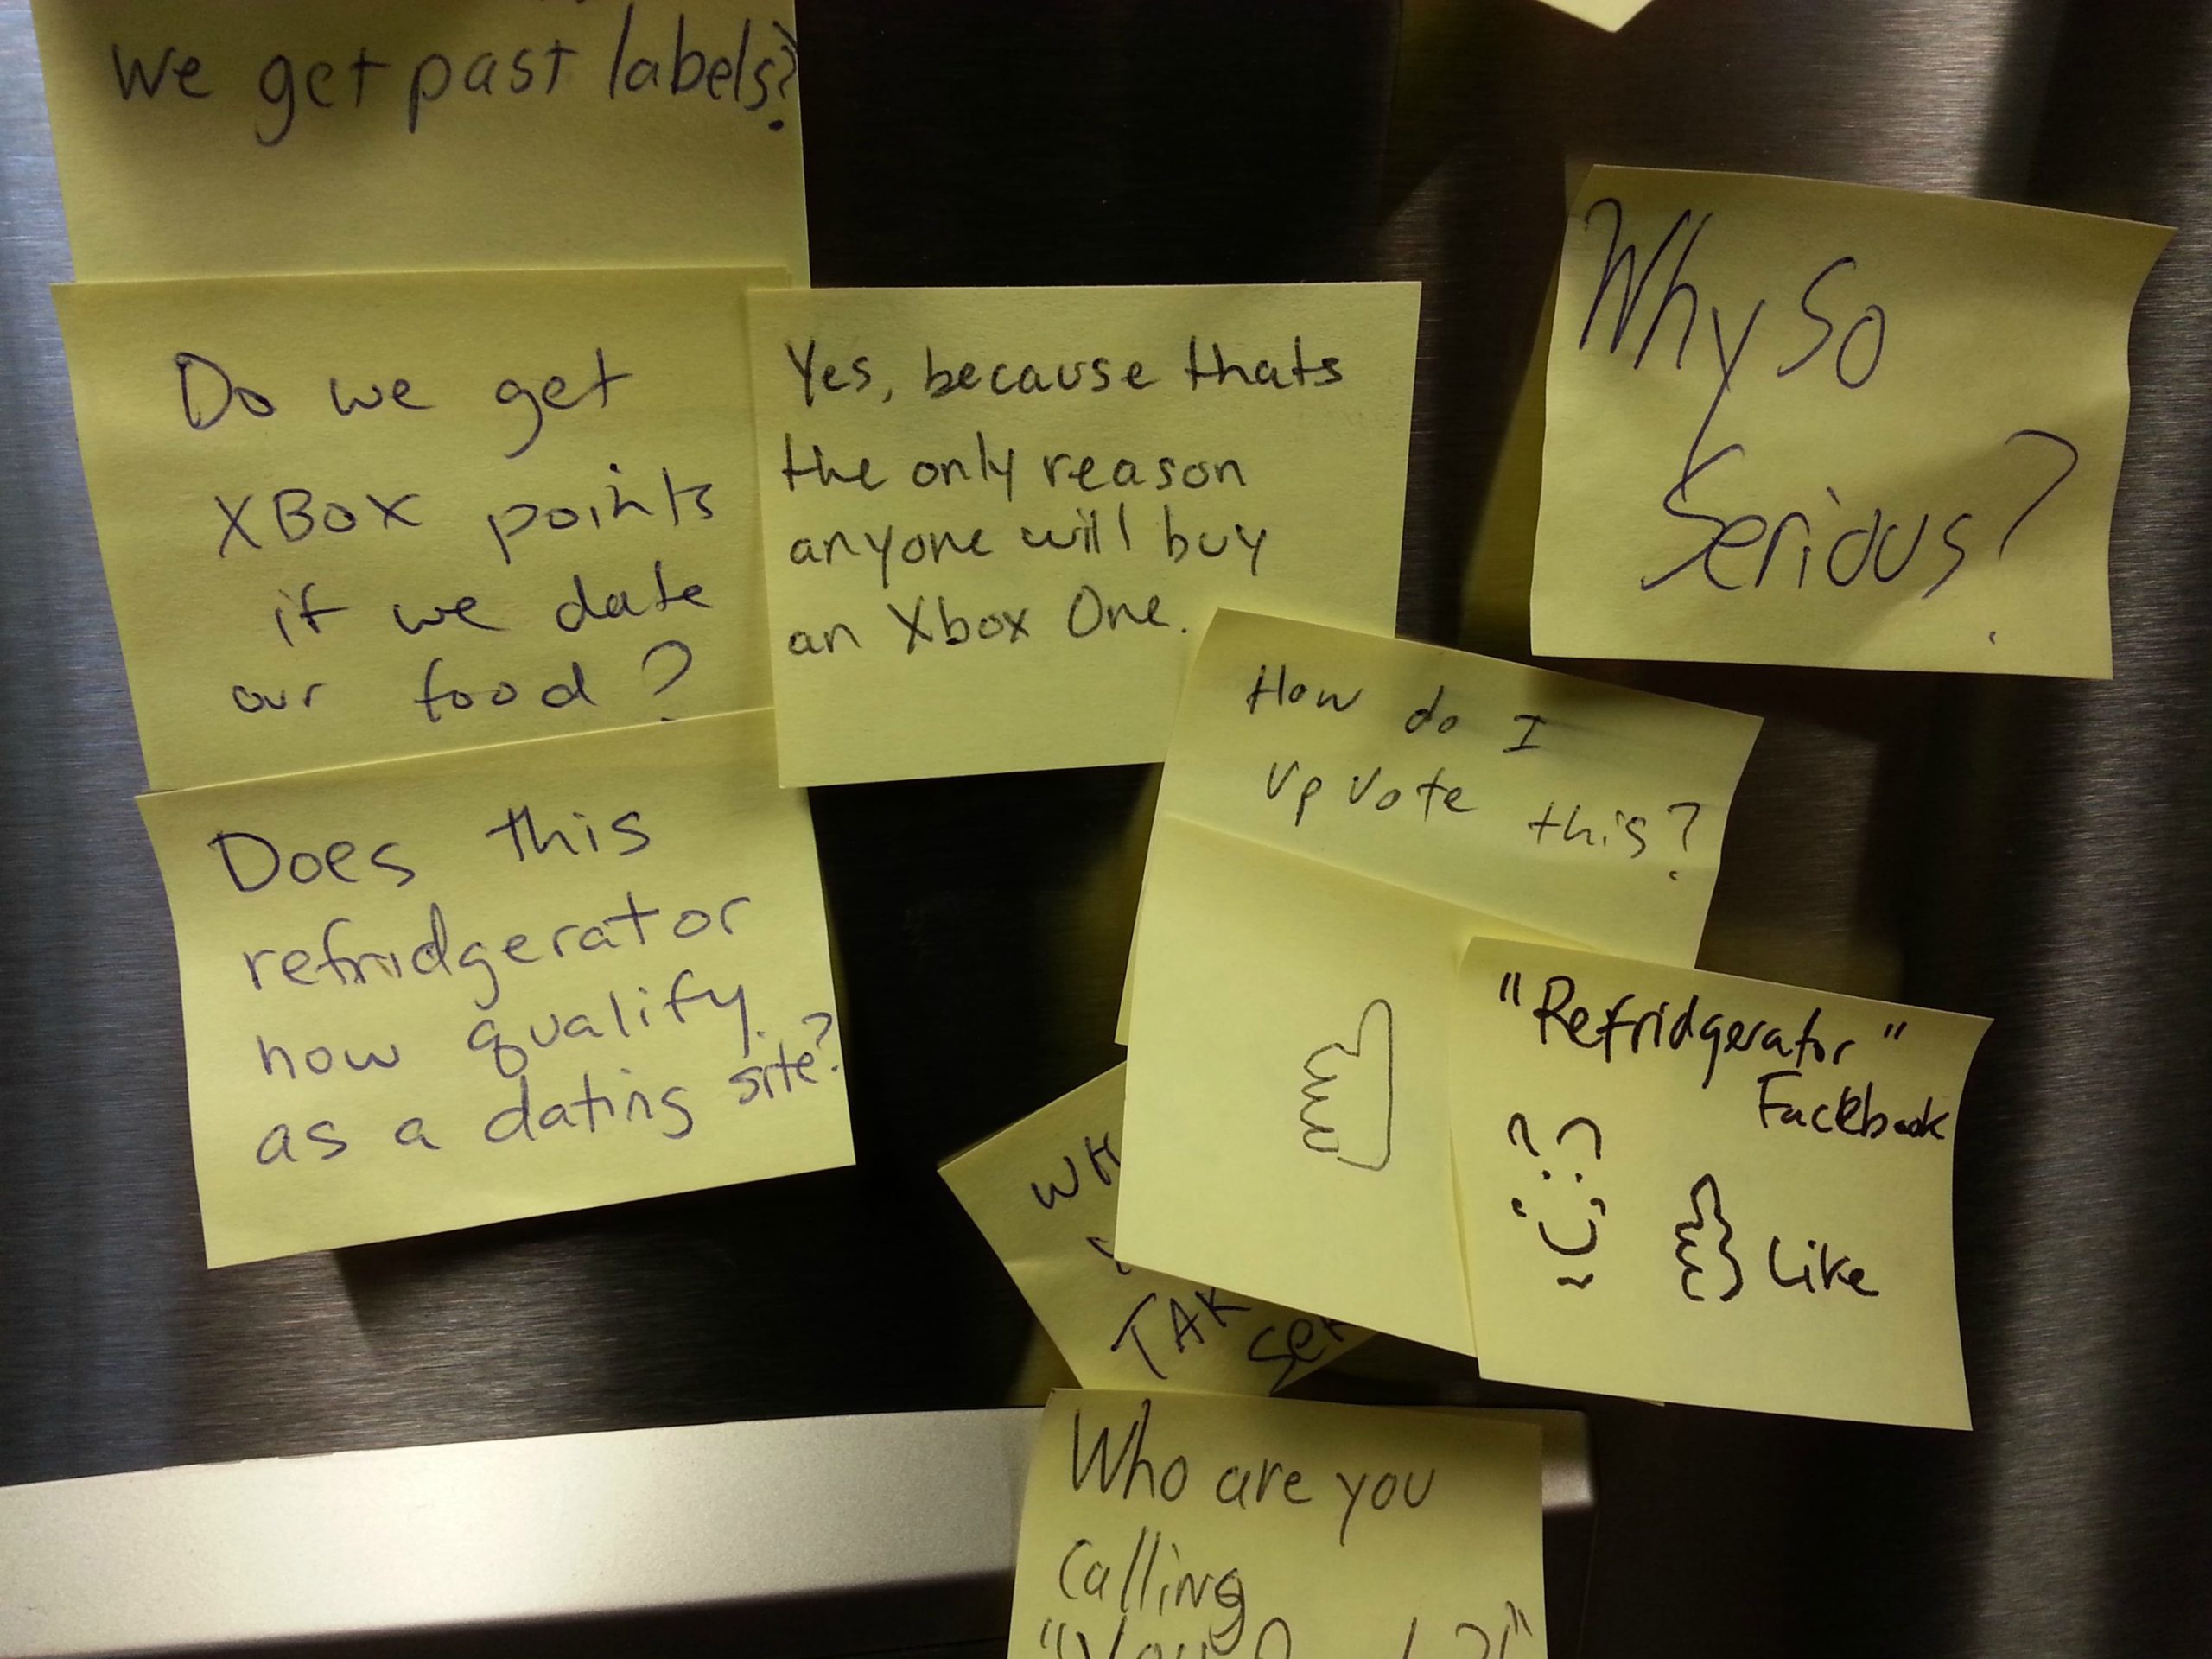 we get past labels?
Do we get
XBOX points
if we date
our food?
Yes, because thats
the only reason
anyone will buy
an Xbox One.
Why So
Serious?
How do I
upvote this?
Does this
refridgerator
now qualify
as a dating site?
"Refridgerator"
Facebook
Like
Who are you
Calling